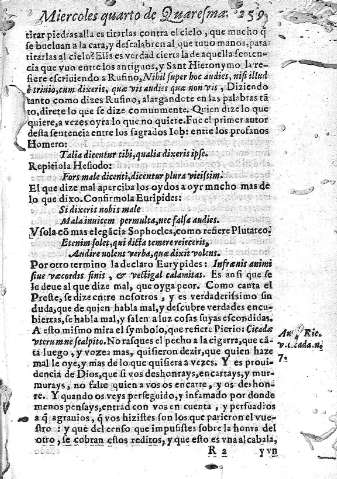 Miercoles quarto de Quaresma. 259
tirar piedras alla es tirarlas contra el cielo, que mucho q̃
se bueluan a la cara, y descalabren al que tuuo manos, para
tirarlas al cielo? Esis es verdad cierta la de aquella senten-
cia que vuo entre los antiguos, y Sant Hieronymo la re-
fiere escriuiendo a Rufino, Nihil super hoc audies, nisi illud
è triuio, cum dixeris, quæ vis audies quæ non vis, Diziendo
tanto como dizes Rufino, alargandote en las palabras tā-
to, direte lo que se dize comunmente. Quien dize lo que
quiere, a vezes oyra lo que no quiere. Fue el primer autor
desta sentencia entre los sagrados Iob: entre los profanos
Homero:
Talia dicentur tibi, qualia dixeris ipse.
Repitiola Hesiodo:
Fors male dicenti, dicentur plura vicissim.
El que dize mal aperciba los oydos a oyr mucho mas de
lo que dixo. Confirmola Euripides:
Si dixeris nobis male
Mala inuicem permulta, nec falsa audies.
Vsola cō mas elegācia Sophocles, como refiere Plutarco.
Etenim solet, qui dicta temere reiecerit,
Audire nolens verba, quæ dixit volens.
Por otro termino la declaro Eurypides: Infrænit animi
siue væcordes finis, & vectigal calamitas. Es ansi que se
le deue al que dize mal, que oyga peor. Como canta el
Preste, se dize entre nosotros, y es verdaderissimo sin
duda, que de quien habla mal, y descubre verdades encu-
biertas, se habla mal, y salen a luz cosas suyas escondidas.
A esto mismo mira el symbolo, que refiere Pierio: Cicadā
vterum ne scalpito. No rasques el pecho a la cigarra, que cā-
ta luego, y vozea mas, quisieron dezir, que quien haze
mal le oye, y mas de lo que quisiera a vezes. Y es proui-
dencia de Dios, que si vos deshonrays, encartays, y mur-
murays, no falte quien a vos os encarte, y os deshon-
re. Y quando os veys perseguido, y infamado por donde
menos pensays, entrad con vos en cuenta, y persuadios
a q̃ agrauios, q̃ vos hizistes son los que parieron el vues-
tro: y que del censo que impusistes sobre la honra del
otro, se cobran estos reditos, y que esto es vna alcabala,
R 2 yvn
7.